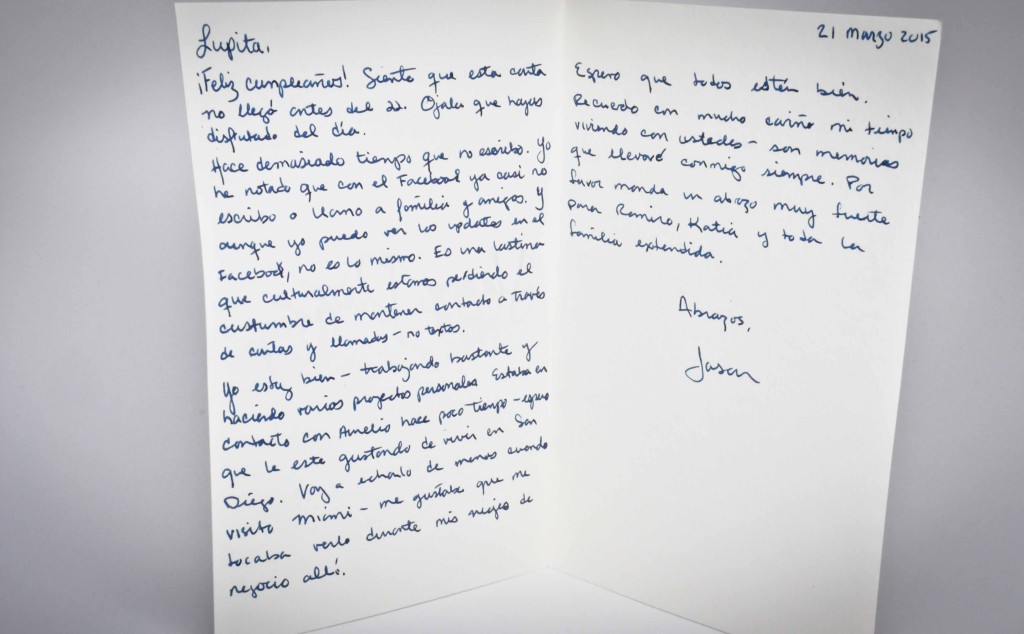 Lupita,
¡Feliz cumpleaños! Siento que esta carta
no llegó antes del 22. Ojala que hayas
disfrutado del día.
Hace demasiado tiempo que no escribo. Yo
he notado que con el Facebook ya casi no
escribo o llamo a familia y amigos. Y
aunque yo puedo ver los updates en el
Facebook, no es lo mismo. Es una lastima
que culturalmente estamos perdiendo el
custumbre de mantener contacto a través
de cartas y llamadas - no textos.
Yo estoy bien - trabajando bastante y
haciendo varios proyectos personales. Estaba en
contacto con Amelio hace poco tiempo - espero
que le este gustando de vivir en San
Diego. Voy a echarlo de menos cuando
visito Miami - me gustaba que me
tocaba verlo durante mis viajes de
negocio allá.
21 marzo 2015
Espero que todos estén bien.
Recuerdo con mucho cariño mi tiempo
viviendo con ustedes - son memorias
que llevaré conmigo siempre. Por
favor manda un abrazo muy fuerte
para Ramiro, Katia y toda la
familia extendida.
Abrazos,
Jason